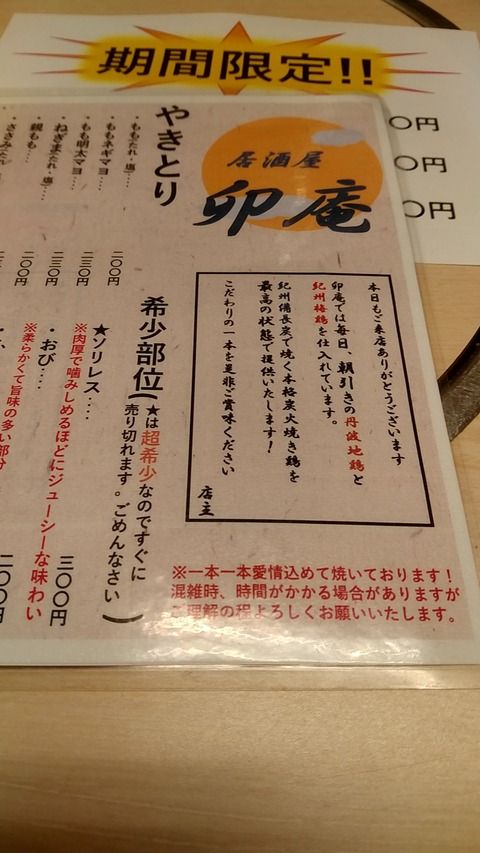 期間限定!!
〇円
〇円
〇円
居酒屋
卯庵
本日もご来店ありがとうございます
卯庵では毎日、朝引きの丹波地鶏と
紀州梅鶏を仕入れています。
紀州備長炭で焼く本格炭火焼き鶏を
最高の状態で提供いたします!
こだわりの一本を是非ご賞味ください
店主
※一本一本愛情込めて焼いております!
混雑時、時間がかかる場合がありますが
ご理解の程よろしくお願いいたします。
やきとり
・もも(たれ・塩)…
・ももネギマヨ… 二〇〇円
・もも明太マヨ… 二三〇円
・ねぎま(たれ・塩)… 二〇〇円
・親もも… 二〇〇円
希少部位(★は超希少なのですぐに
売り切れます。ごめんなさい)
★ソリレス‥‥ 三〇〇円
※肉厚で噛みしめるほどにジューシーな味わい
・おび‥‥ 二〇〇円
※柔らかくて旨味の多い部分